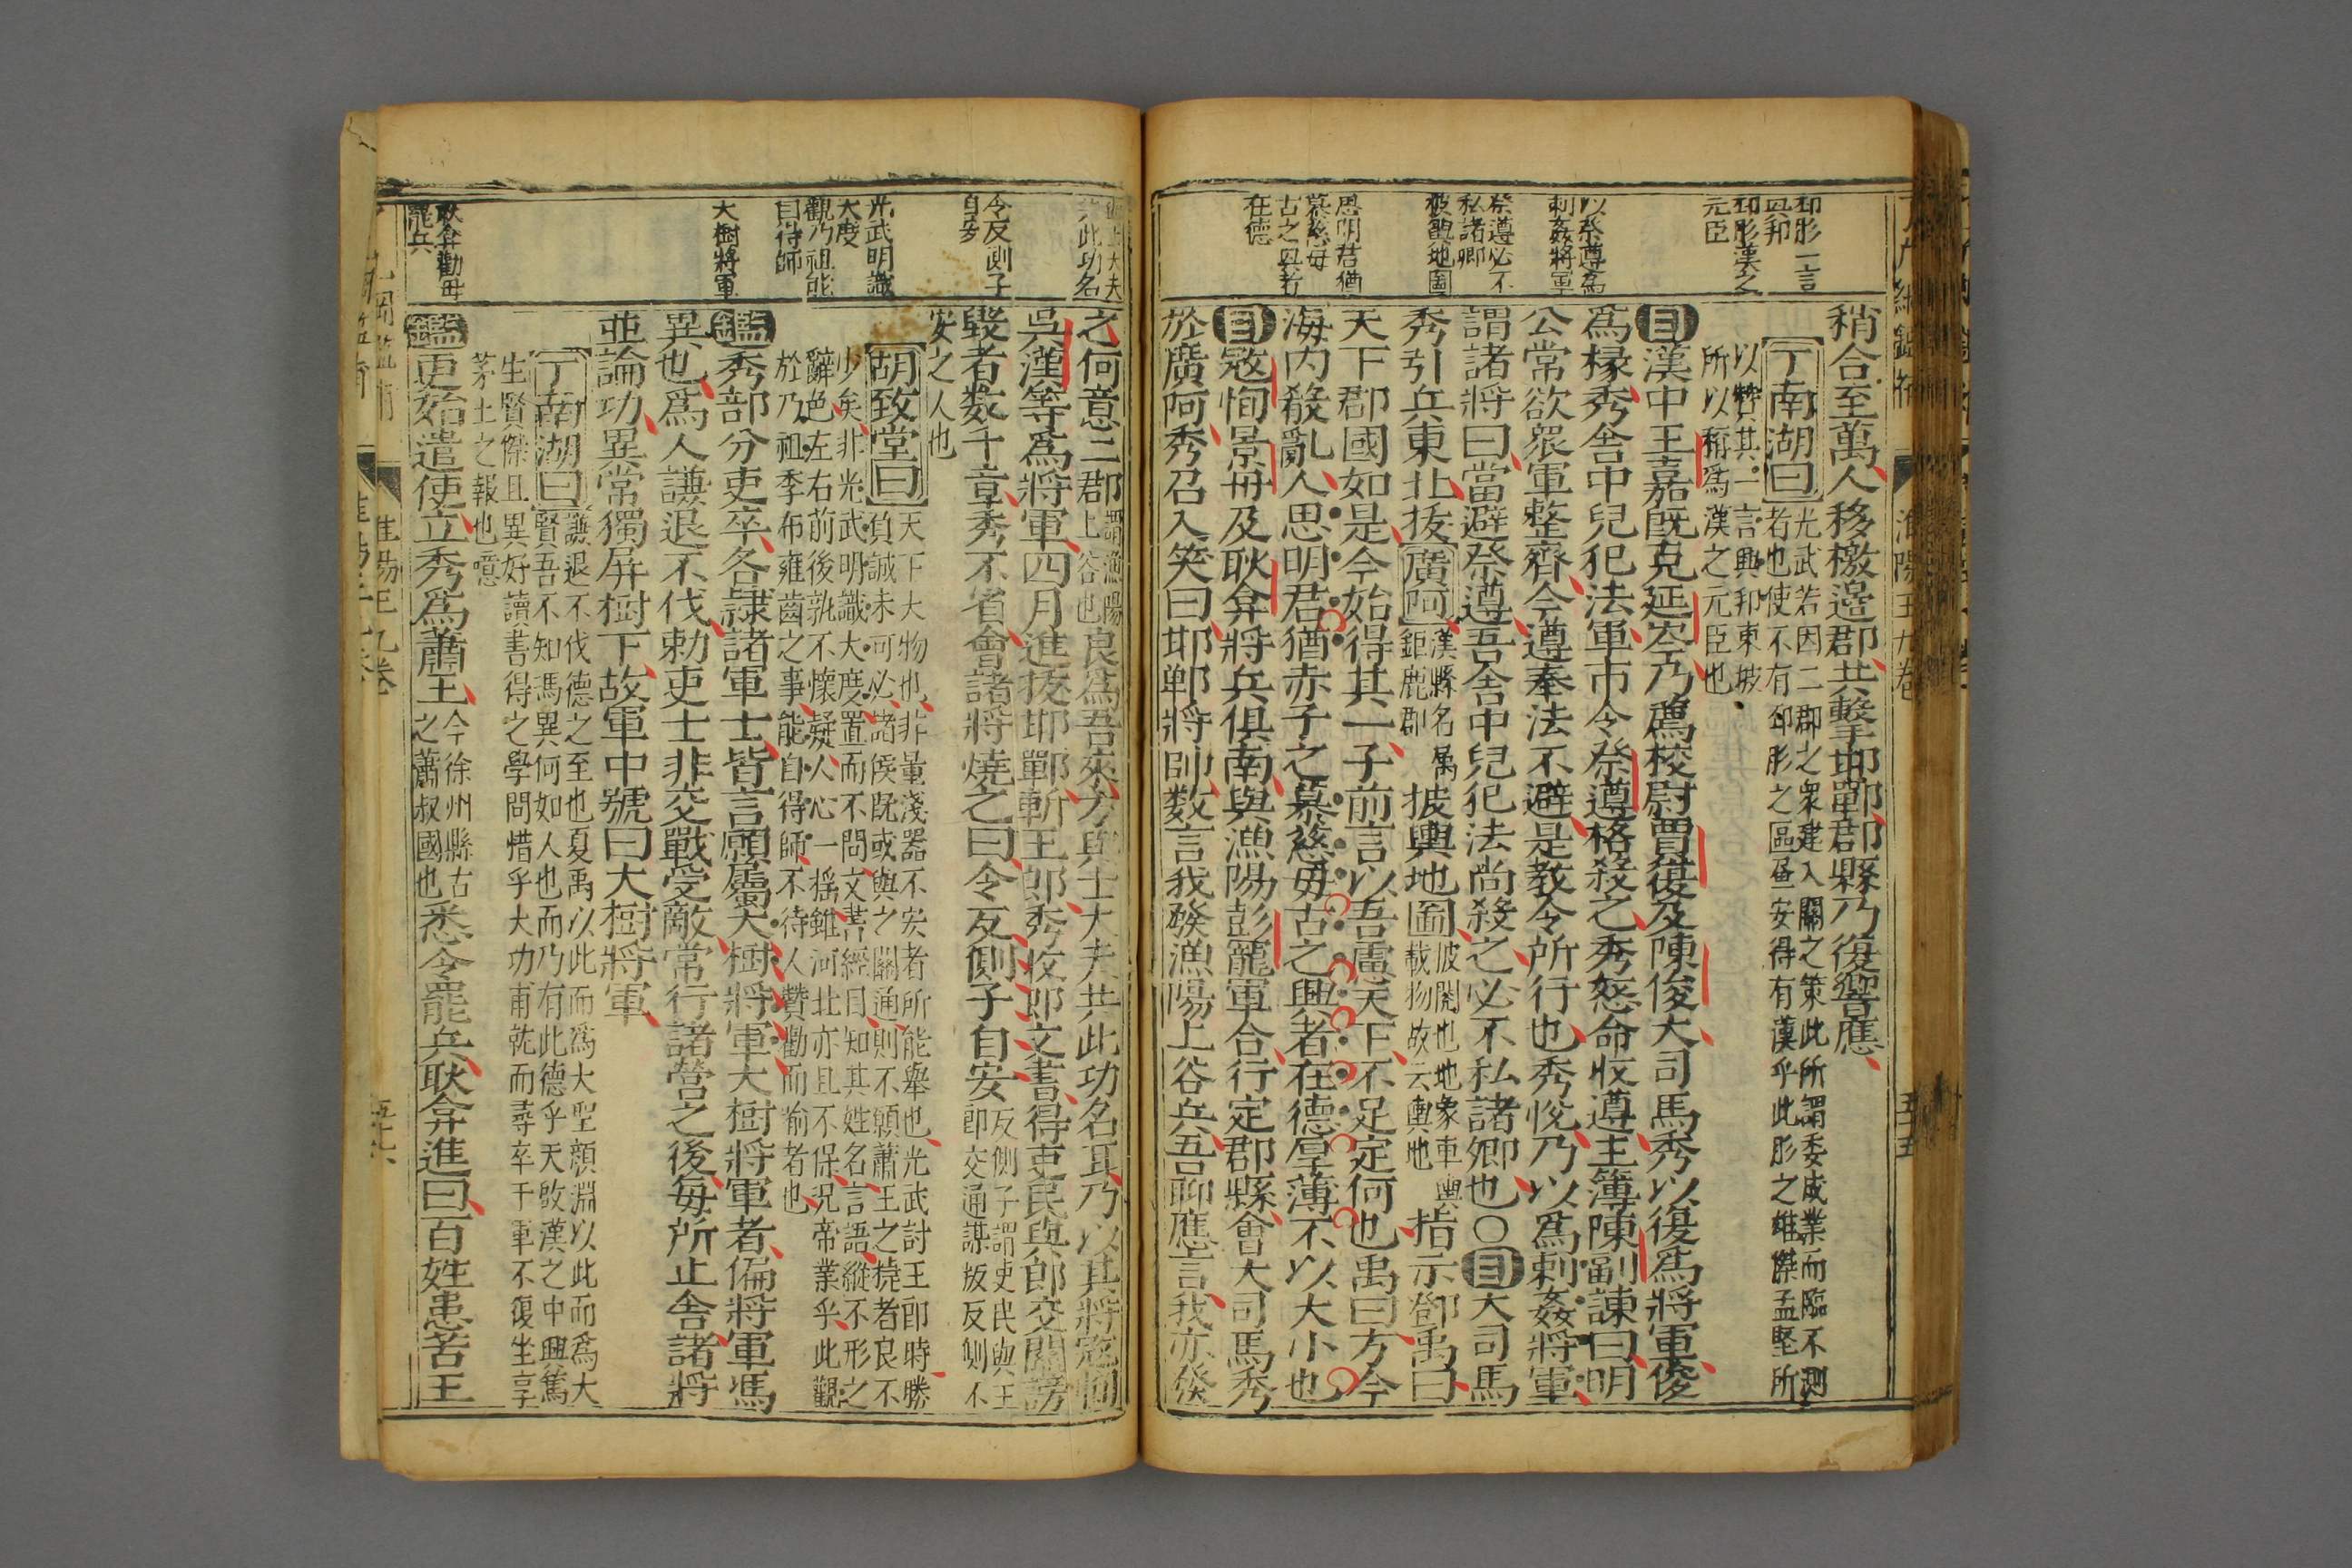 邳彤一言
興邦
邳彤漢之
元臣
以祭遵爲
刺姦將軍
祭遵必不
私諸卿
披輿地圖
思明君猶
慕慈母
古之興者
在德
稍合至萬人移檄邊郡共擊邯鄲郡縣乃復響應
丁南湖曰光武若因二郡之衆建入關之策此所謂委成業而臨不測
者也使不有邳彤之區畫安得有漢乎此彤之雄傑孟堅所
以贊其一言興邦東坡
所以稱爲漢之元臣也
目漢中王嘉旣克延岑乃薦校尉賈復及陳俊大司馬秀以復爲將軍俊
爲掾秀舍中兒犯法軍市令祭遵格殺之秀怒命收遵主簿陳副諫曰明
公常欲衆軍整齊今遵奉法不避是教令所行也秀悅乃以爲刺姦將軍
謂諸將曰當避祭遵吾舍中兒犯法尚殺之必不私諸卿也○目大司馬
秀引兵東北拔廣阿漢縣名属
鉅鹿郡披輿地圖披開也地象車輿
載物故云輿地指示鄧禹曰
天下郡國如是今始得其一子前言以吾慮天下不足定何也禹曰方今
海内殽乱人思明君猶赤子之慕慈母古之興者在德厚薄不以大小也
目寇恂景丹及耿弇將兵俱南與漁陽彭寵軍合行定郡縣會大司馬秀
於廣阿秀召入笑曰邯鄲將帥数言我發漁陽上谷兵吾聊應言我亦發
與士大夫
共此功名
令反側子
自安
光武明識
大度
觀乃祖能
自得師
大樹將軍
耿弇勸毋
罷兵
之何意二郡謂漁陽
上谷也良爲吾來方與士大夫共此功名耳乃以其將寇恂
吳漢等爲將軍四月進拔邯鄲斬王郎秀收郎文書得吏民與郎交關謗
毀者数千章秀不省會諸將燒之曰令反側子自安反側子謂吏民與王
郎交通謀叛反側不
安之人也
胡致堂曰天下大物也非量淺器不宏者所能舉也光武討王郎時勝
負誠未可必諸侯既或與之關通則不願蕭王之捷者良不
少矣非光武明識大度置而不問文書經目知其姓名言語縱不形之
辭色左右前後孰不懷疑人心一搖雖河北亦且不保况帝業乎此觀
於乃祖季布雍齒之事能自得師不待人贊勸而喻者也
鑑秀部分吏卒各隷諸軍士皆言願屬大樹將軍大樹將軍者偏將軍馮
異也爲人謙退不伐勅吏士非交戰受敵常行諸營之後每所止舍諸將
並論功異常獨屏樹下故軍中號曰大樹將軍
丁南湖曰謙退不伐德之至也夏禹以此而爲大聖顔淵以此而爲大
賢吾不知馮異何如人也而乃有此德乎天啟漢之中興篤
生賢傑且異好讀書得之學問惜乎大功甫就而尋卒于軍不復生享
茅土之報也噫
鑑更始遣使立秀爲蕭王今徐州縣古
之蕭叔國也悉令罷兵耿弇進曰百姓患苦王